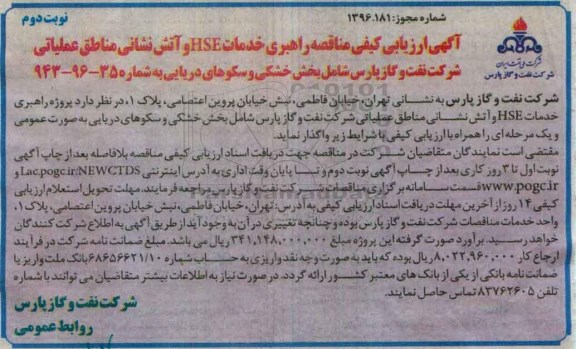 شماره مجوز: ۱۳۹۶.۱۸۱
نوبت دوم
آگهی ارزیابی کیفی مناقصه راهبری خدمات HSE و آتش نشانی مناطق عملیاتی
شرکت نفت و گاز پارس شامل بخش خشکی و سکوهای دریایی به شماره ۳۵-۹۶-۹۴۳
شرکت ملی نفت ایران
شرکت نفت و گاز پارس
شرکت نفت و گاز پارس به نشانی تهران، خیابان فاطمی، نبش خیابان پروین اعتصامی، پلاک ۱، در نظر دارد پروژه راهبری
خدمات HSE و آتش نشانی مناطق عملیاتی شرکت نفت و گاز پارس شامل بخش خشکی و سکوهای دریایی به صورت عمومی
و یک مرحله ای را همراه با ارزیابی کیفی با شرایط زیر واگذار نماید.
مقتضی است نمایندگان متقاضیان شرکت در مناقصه جهت دریافت اسناد ارزیابی کیفی مناقصه بلافاصله بعد از چاپ آگهی
نوبت اول تا ۳ روز کاری بعد از چاپ آگهی نوبت دوم و تا پایان وقت اداری به آدرس اینترنتی Lac.pogc.ir/NEWCTDS و
www.pogc.ir قسمت سامانه برگزاری مناقصات شرکت نفت و گاز پارس مراجعه فرمایند. مهلت تحویل استعلام ارزیابی
کیفی ۱۴ روز از آخرین مهلت دریافت اسناد ارزیابی کیفی به آدرس: تهران، خیابان فاطمی، نبش خیابان پروین اعتصامی، پلاک ۱،
واحد خدمات مناقصات شرکت نفت و گاز پارس بوده و چنانچه تغییری در آن به وجود آید از طریق آگهی به اطلاع شرکت کنندگان
خواهد رسید. برآورد صورت گرفته این پروژه مبلغ ۳۴۱,۱۴۸,۰۰۰,۰۰۰ ریال می باشد. مبلغ ضمانت نامه شرکت در فرآیند
ارجاع کار ۸,۰۲۲,۹۶۰,۰۰۰ ریال بوده که باید به صورت وجه نقد واریزی به حساب شماره ۶۸۶۵۶۶۲۱/۱۰ بانک ملت واریز یا
ضمانت نامه بانکی از یکی از بانک های معتبر کشور ارائه گردد. در صورت نیاز به اطلاعات بیشتر متقاضیان می توانند با شماره
تلفن ۸۳۷۶۲۶۰۵ تماس حاصل نمایند.
شرکت نفت و گاز پارس
روابط عمومی